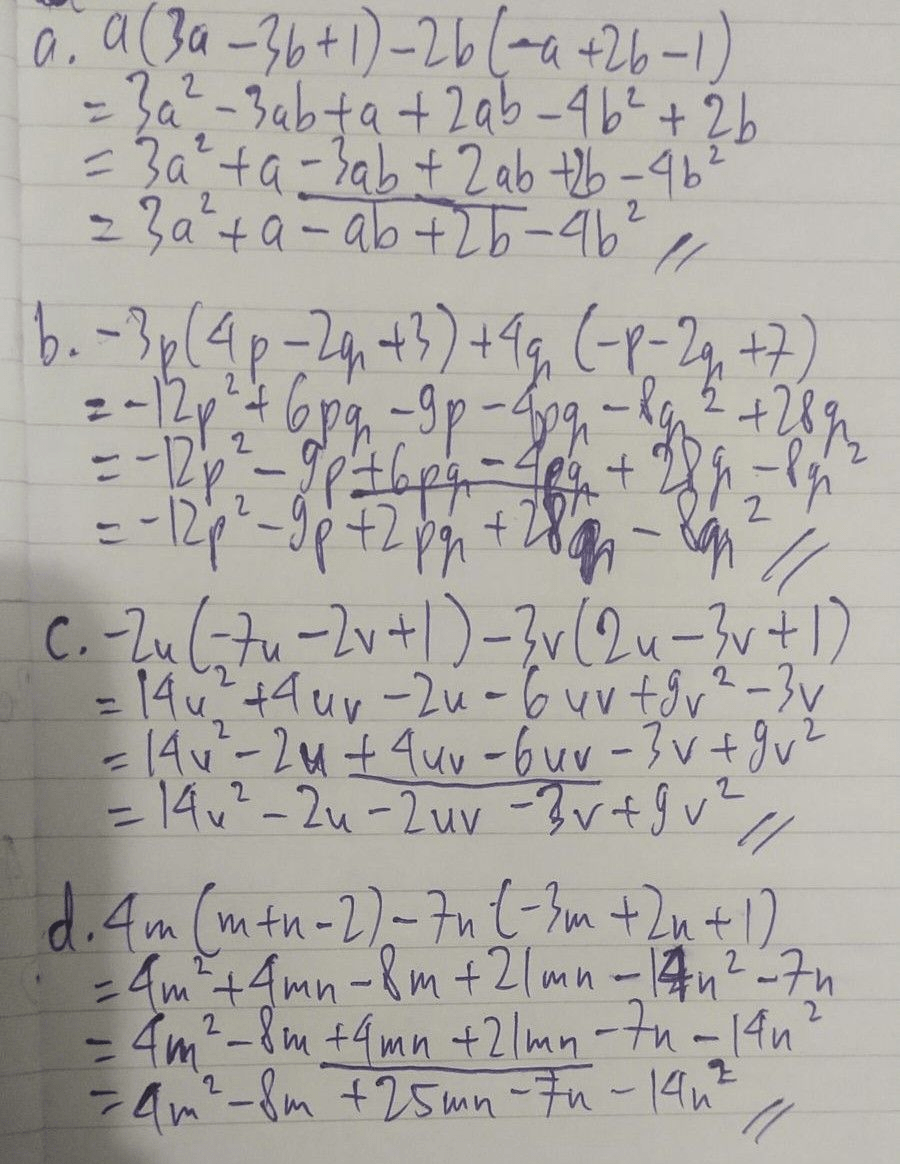 a. a(3a - 3b + 1) - 2b(-a + 2b - 1)
= 3a² - 3ab + a + 2ab - 4b² + 2b
= 3a² + a - 3ab + 2ab + 2b - 4b²
= 3a² + a - ab + 2b - 4b² //
b. -3p(4p - 2q + 3) + 4q(-p - 2q + 7)
= -12p² + 6pq - 9p - 4pq - 8q² + 28q
= -12p² - 9p + 6pq - 4pq + 28q - 8q²
= -12p² - 9p + 2pq + 28q - 8q² //
c. -2u(-7u - 2v + 1) - 3v(2u - 3v + 1)
= 14u² + 4uv - 2u - 6uv + 9v² - 3v
= 14u² - 2u + 4uv - 6uv - 3v + 9v²
= 14u² - 2u - 2uv - 3v + 9v² //
d. 4m(m + n - 2) - 7n(-3m + 2n + 1)
= 4m² + 4mn - 8m + 21mn - 14n² - 7n
= 4m² - 8m + 4mn + 21mn - 7n - 14n²
= 4m² - 8m + 25mn - 7n - 14n² //